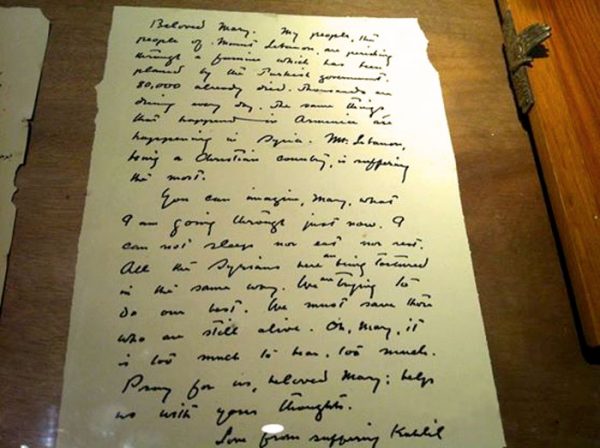 Beloved Mary. My people, the
people of Mount Lebanon, are perishing
through a famine which has been
planned by the Turkish government.
80,000 already died. Thousands are
dying every day. The same things
that happend in Armenia are
happening in Syria. Mt. Lebanon,
being a Christian country, is suffering
the most.
You can imagine, Mary, what
I am going through just now. I
can not sleep nor eat nor rest.
All the Syrians here are being tortured
in the same way. We are trying to
do our best. We must save those
who are still alive. Oh, Mary, it
is too much to bear, too much.
Pray for us, beloved Mary; help
us with your thoughts.
Love from suffering Kahlil